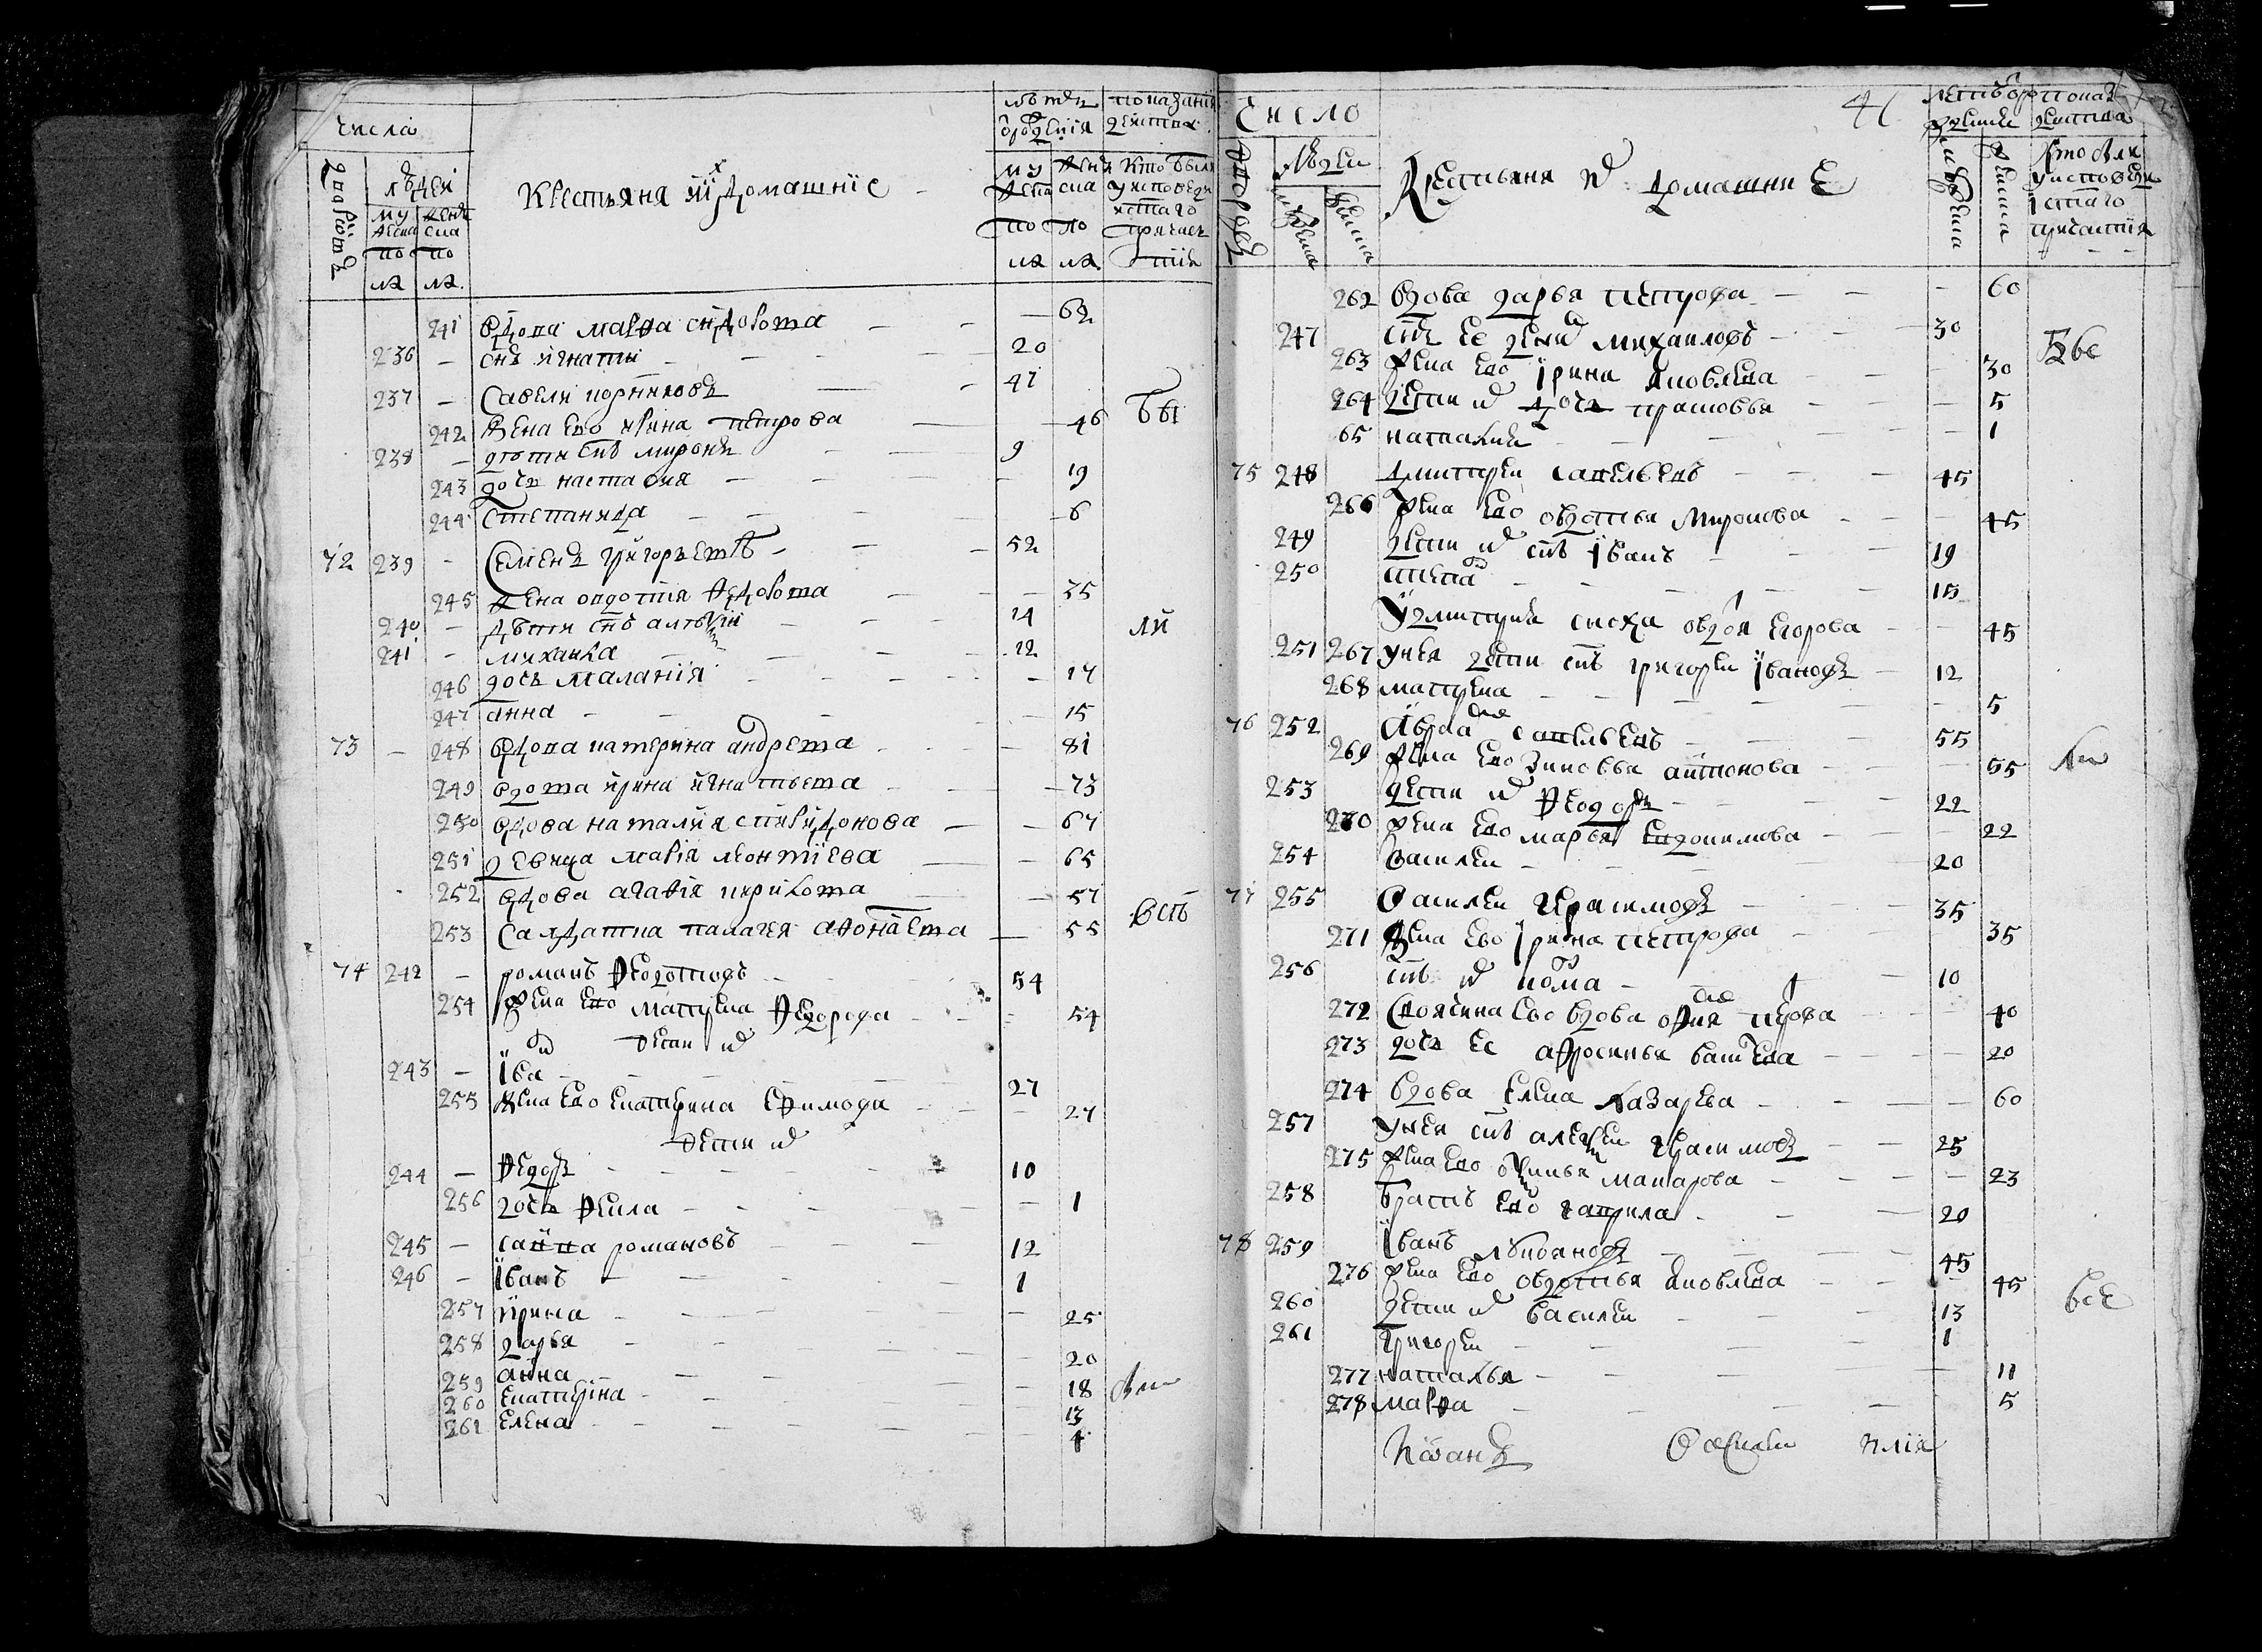 числа
дворовъ
людей
му жеска по ла
женс ска по ла.
Крестьяня и ихъ домашніе
лѣта от рожденія
му жеска по ла
женс ска по ла
показаніе действа
кто былъ у исповеди и стаго причастія
241 вдова марѳа сидорова — 62
236 — снъ игнатъи — 20
237 — Савели — 41
242 жена ево ирина петрова — 46 бы
238 — дѣти снъ миронъ — 9
243 дочь настасия — 19
244 степанида — 6
72 239 — Семенъ григорьевъ — 52
245 жена овдотия ѳедорова — 35
240 — дѣти снъ алеѣѣи — 14 ли
241 — михаила — 12
246 дочь маланія — 17
247 анна — 15
73 — 248 вдова катерина андрева — 81
249 вдова ирина игнатьева — 73
250 вдова наталия спиридонова — 67
251 девица марія леонтіева — 65
252 вдова агаѳія кирилова — 57
253 Салдатка палагея аѳонаева — 55 всѣ
74 242 — романъ Ѳедотовъ — 54
254 жена ево матрена Ѳедорова — 54
дети ихъ
243 — Їванъ — 27
255 жена ево екатерина ефимова — 27
дети ихъ
244 — Ѳедоръ — 10
256 дочь Ѳекла — 1
245 — савва романовъ — 12
246 — Їванъ — 1
257 ирина — 25
258 дарья — 20
259 анна — 18
260 екатерина — 13
261 елена — 4
Число
41
дворовъ
людей
мужеска
женска
Крестьяня ихъ домашние
лета от рожденія
мужеска
женска
показ действа
кто были у исповеди і стаго причастия
262 вдова дарья петрова — 60
247 снъ ее денисъ михаиловъ — 30 Бые
263 жена ево Їрина яковлева — 30
264 дети ихъ дочь прасковья — 5
65 наталия — 1
75 248 дмитреи савельевъ — 45
266 жена ево овдотья миронова — 45
249 дети ихъ снъ Їванъ — 19
250 степанъ — 15
У дмитрия сноха овдотя егорова — 45
251 267 у нея дети снъ григореи Ївановъ — 12
268 матрена — 5
76 252 Авраамъ савельевъ — 55
269 жена ево зиновья антонова — 55 ли
253 дети ихъ Ѳеодоръ — 22
270 жена ево марья евдокимова — 22
254 василеи — 20
77 255 Василеи герасимовъ — 35
271 жена ево Їрина петрова — 35
256 снъ ихъ козма — 10
272 Свояченица ево вдова петрова — 40
273 дочь ее аѳросинья васильева — 20
274 вдова елена лазарева — 60
257 у нея снъ алеѣеи герасимовъ — 25
275 жена ево макарова — 23
258 братъ ево гаврила — 20
78 259 Їванъ лукияновъ — 45
276 жена ево овдотья яковлева — 45
260 дети ихъ василеи — 13 все
261 григореи — 1
277 наталья — 11
278 марѳа — 5